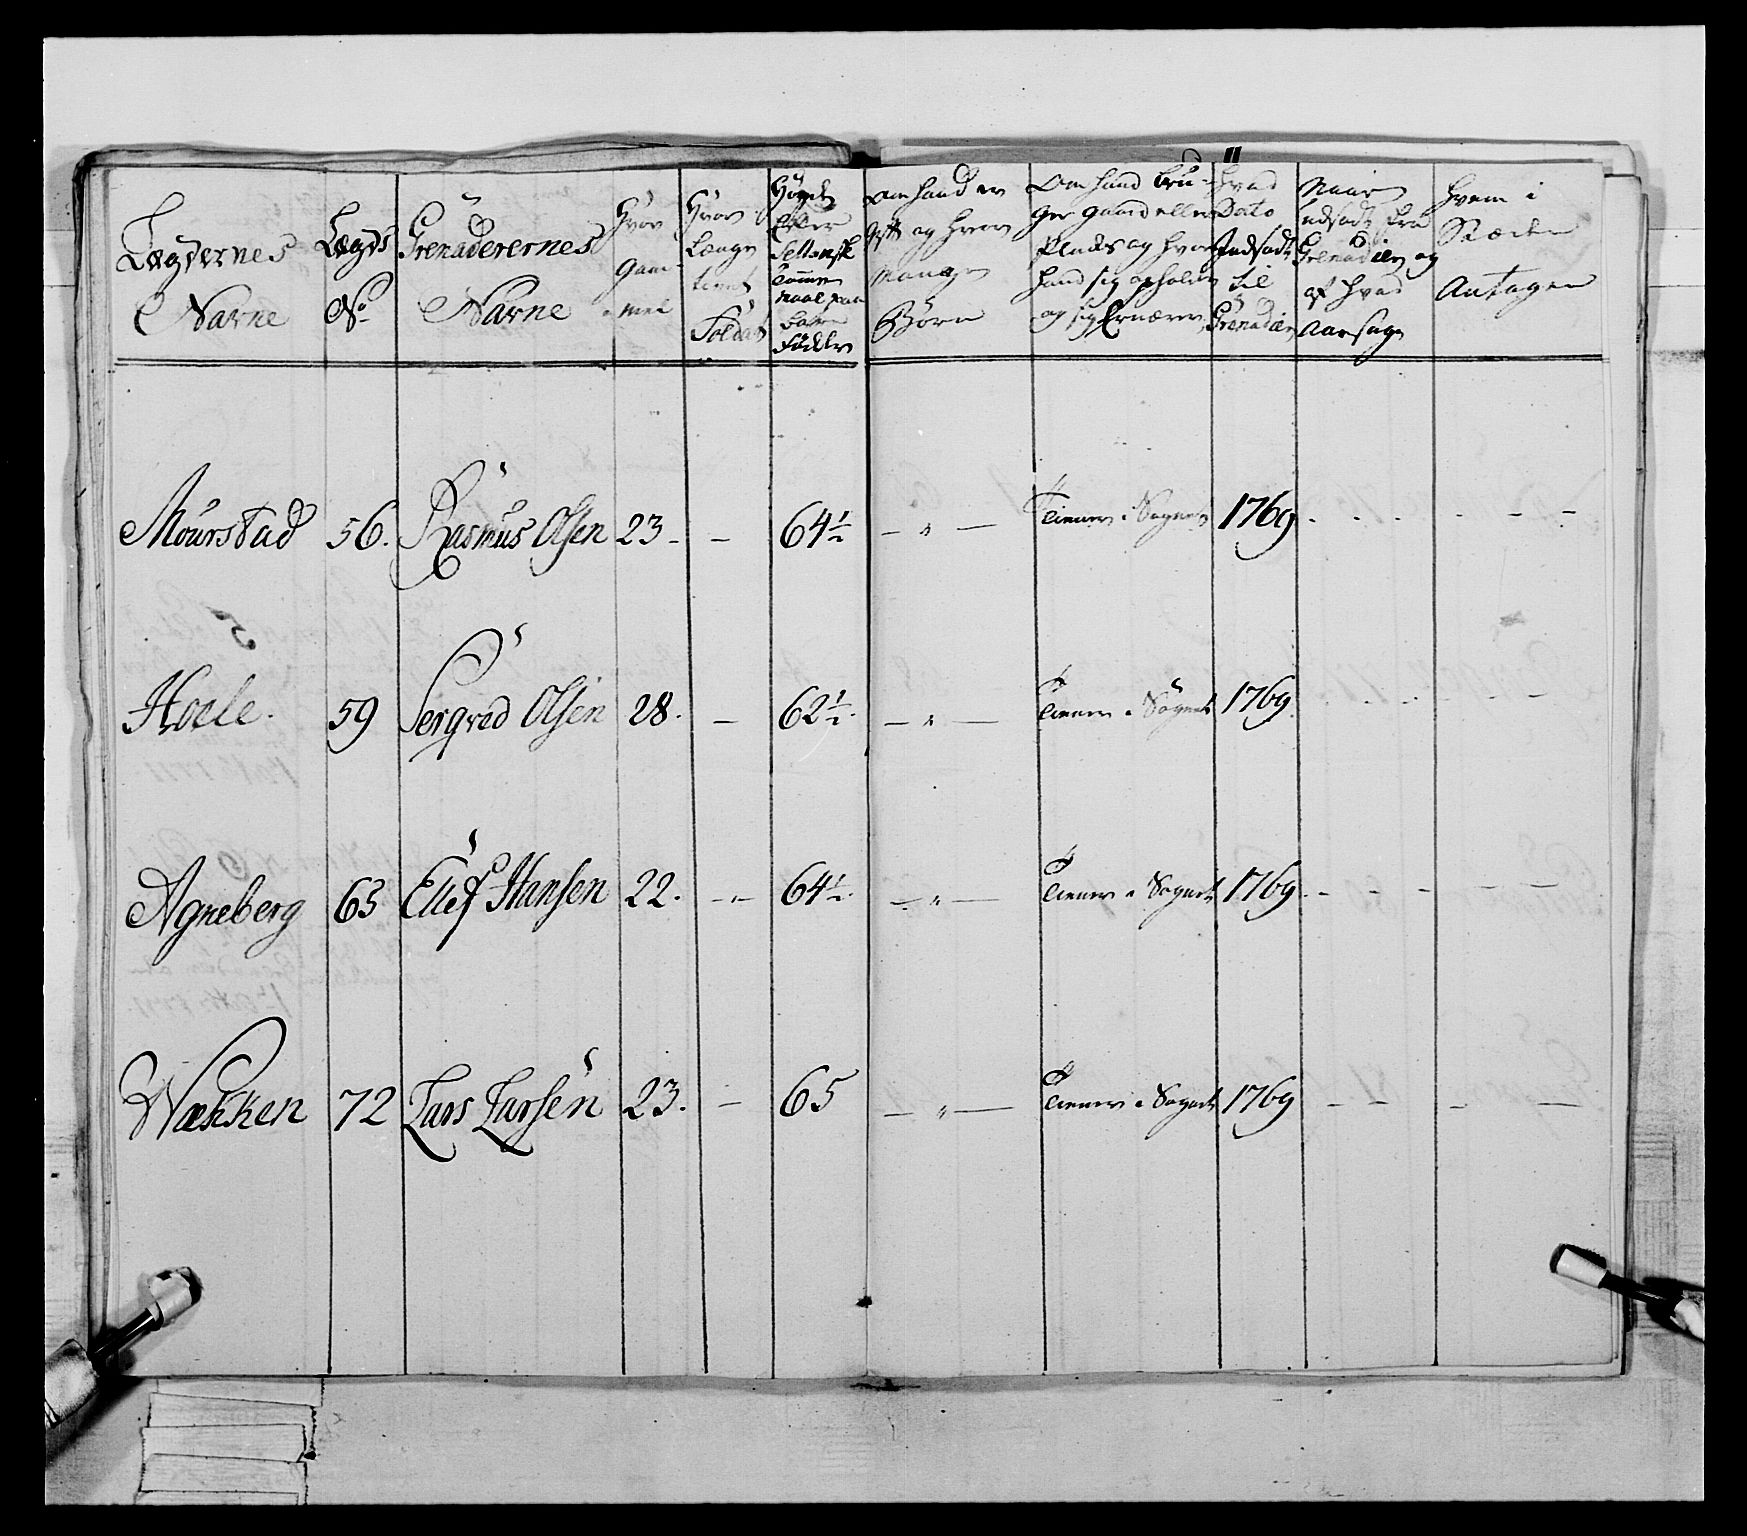 11
Legdernes Navne
Lægds No
Grenaderernes Navne
Hvor gammel
Hvor længe tient Soldat
Høyde Efter Tommer maal paa bare Födder
Om hand er gift og hvor mange Børn
Om hand bruger gaard eller Plads og hvor hand sig opholder og sig Ernærer
Hvad Dato Indsadt til Grenadeer
Naar udsadt fra Grenadeer og af hvad Aarsage
Hvem i Stæden Antagen
Mourstad 56. Rasmus Olsen 23 - - 64 1/2 - " - Tiener i Sognet 1769
Hoele. 59 Olsen 28. - 62 1/2. - " - Tiener i Sognet 1769
Agneberg 63 Ellef Hansen 22. - " - 64 1/2. - " - Tiener i Sognet 1769
Wækken 72 Lars Larsen 23. - 65 - " - Tiener i Sognet 1769